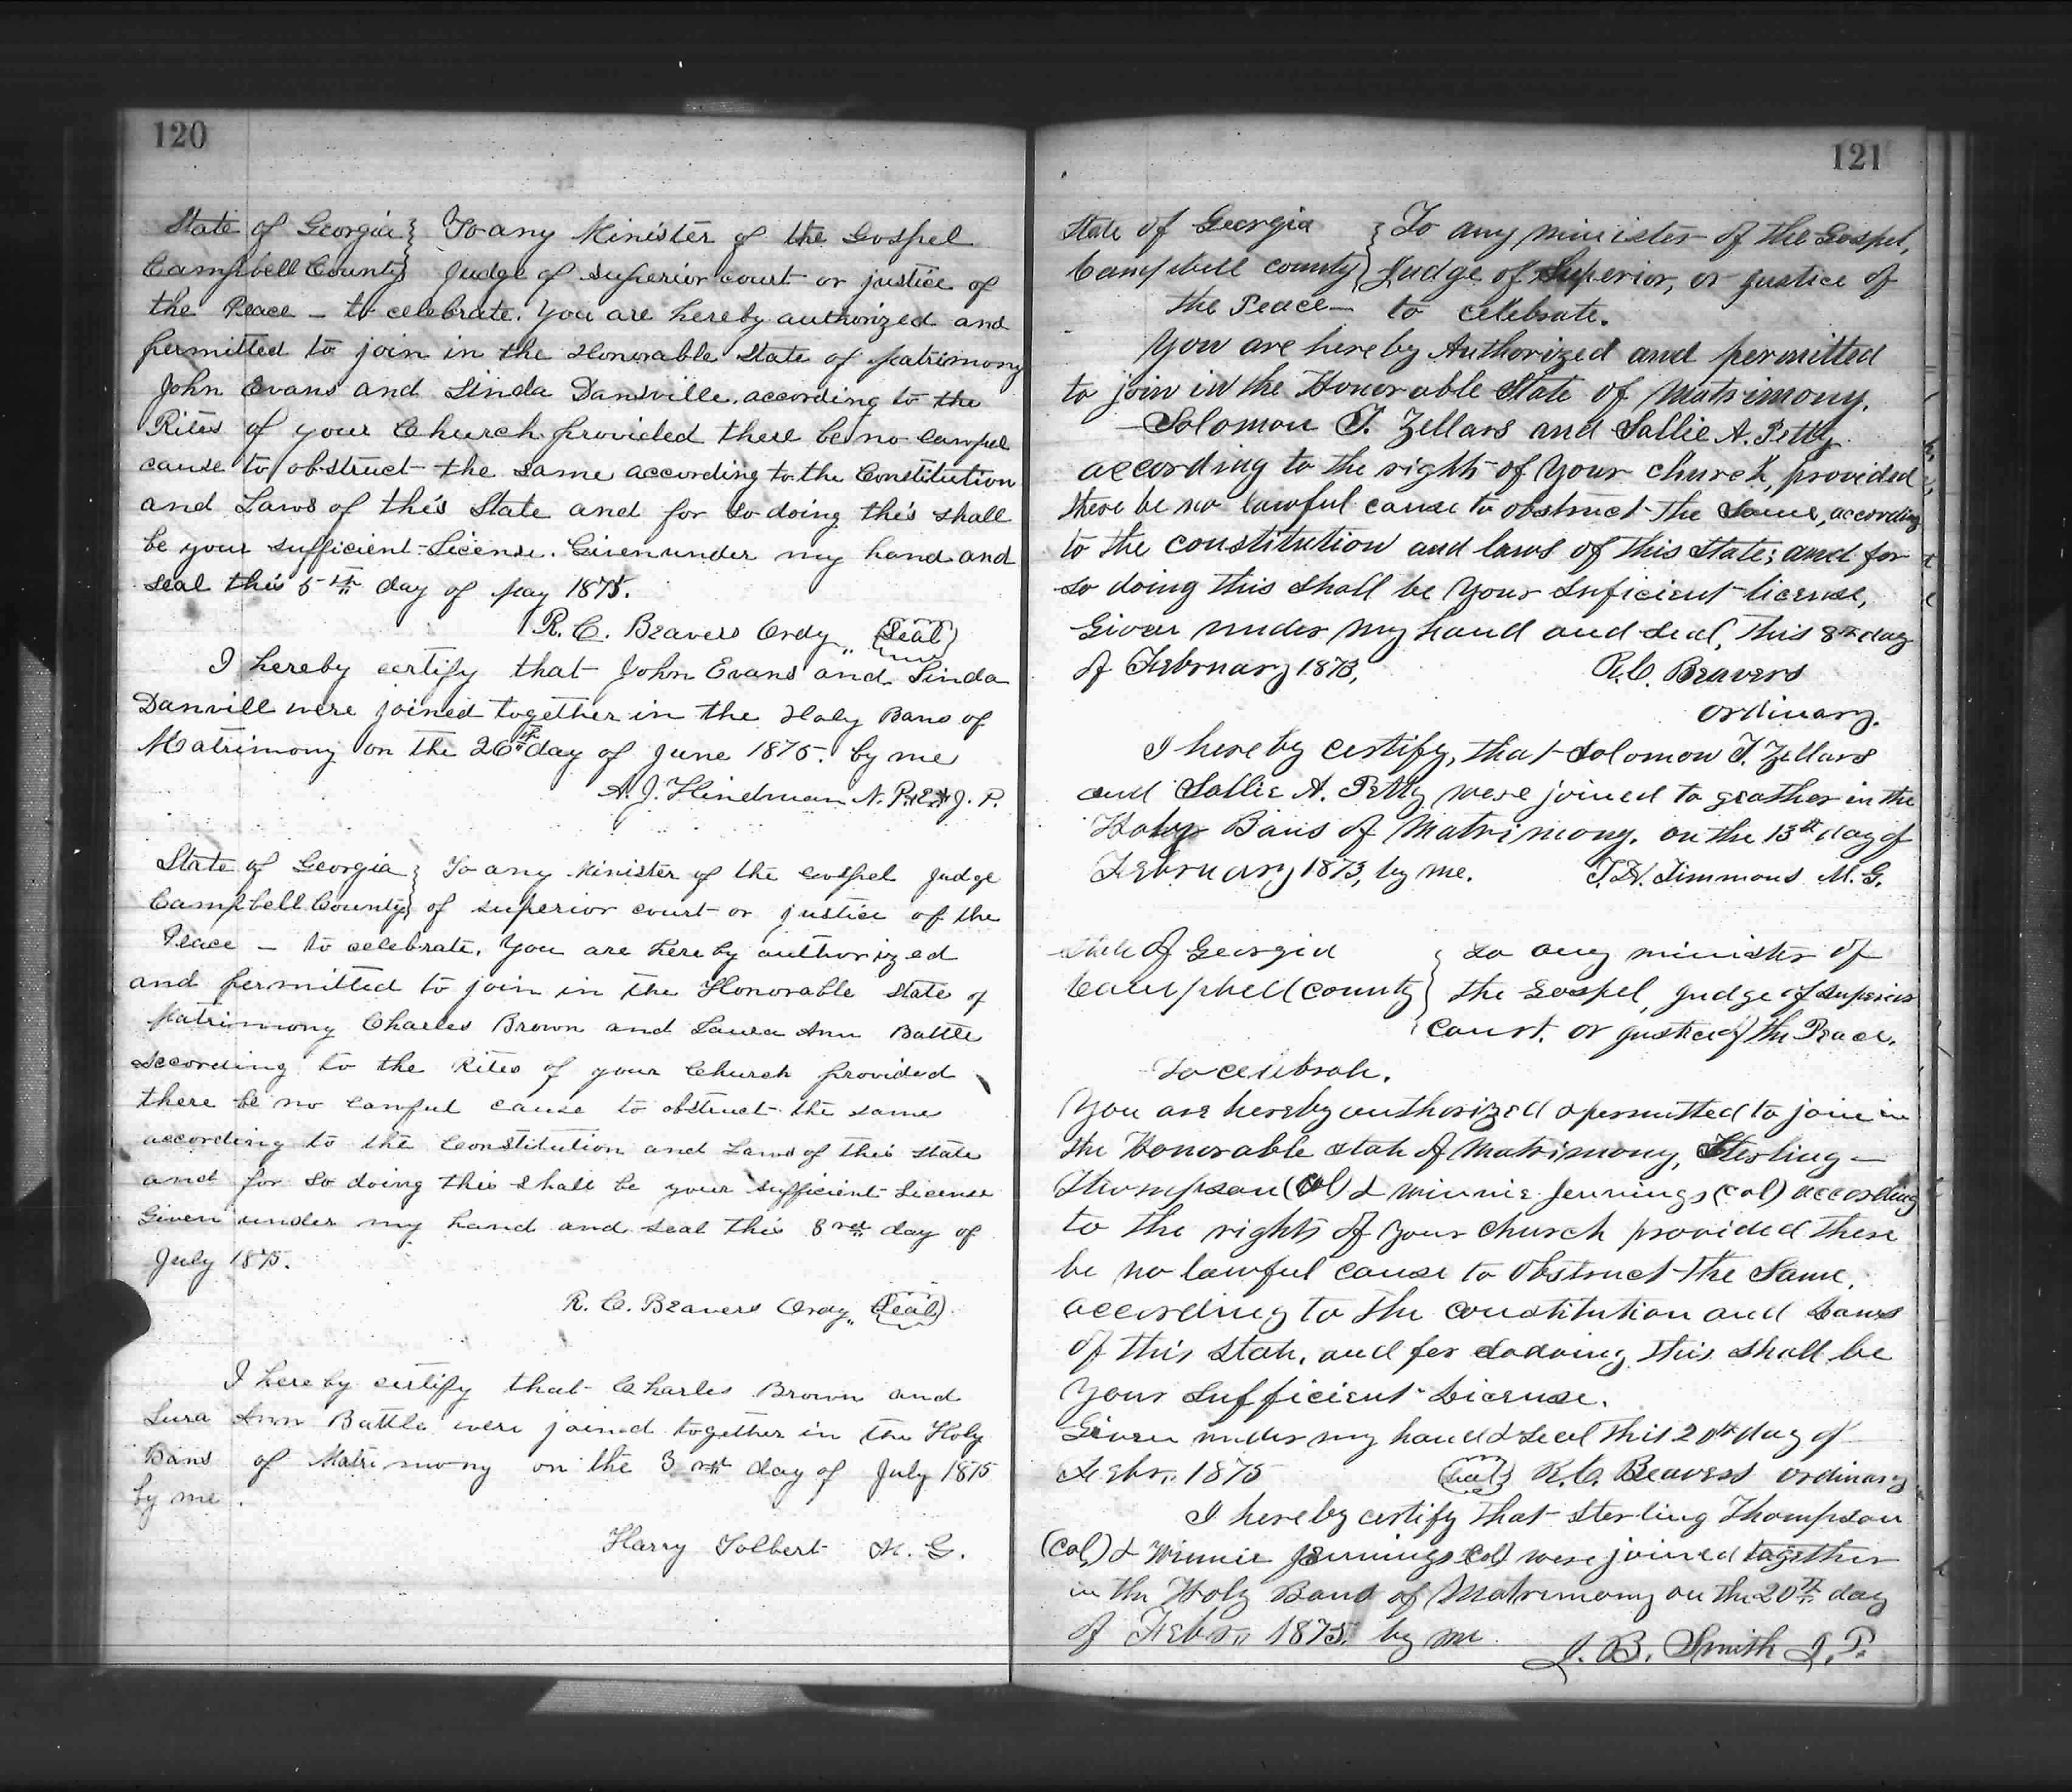 120
State of Georgia } To any Minister of the Gospel
Campbell County } Judge of Superior Court or justice of
the Peace - to celebrate. You are hereby authorized and
permitted to join in the Honorable State of Matrimony
John Evans and Linda Dansville, according to the
Rites of your Church provided there be no lawful
cause to obstruct the same according to the Constitution
and Laws of this State and for so doing this shall
be your sufficient License. Given under my hand and
seal this 5th day of May 1875.
R. C. Beavers Ordy,, (Seal)
I hereby certify that John Evans and Linda
Danvill were joined together in the Holy Bans of
Matrimony on the 26th day of June 1875. by me
A. J. Hindman N. P. & Ex J. P.
State of Georgia } To any Minister of the Gospel Judge
Campbell County } of superior court or justice of the
Peace - to celebrate. You are hereby authorized
and permitted to join in the Honorable State of
Matrimony Charles Brown and Laura Ann Battle
according to the Rites of your Church provided
there be no lawful cause to obstruct the same
according to the Constitution and Laws of this State
and for so doing this shall be your sufficient License
Given under my hand and seal this 3rd day of
July 1875.
R. C. Beavers Ordy,, (Seal)
I hereby certify that Charles Brown and
Lura Ann Battle were joined together in the Holy
Bans of Matrimony on the 3rd day of July 1875
by me.
Harry Tolbert M. G.
121
State of Georgia } To any minister of the Gospel,
Campbell county } Judge of Superior, or justice of
the Peace - to celebrate.
You are hereby Authorized and permitted
to join in the Honorable State of Matrimony.
Solomon T. Zellars and Sallie A. Petty
according to the rights of your church, provided
there be no lawful cause to obstruct the Same, according
to the constitution and laws of this State; and for
so doing this shall be your suficient license,
Given under my hand and seal, this 8th day
of February 1873, R. C. Beavers
ordinary.
I hereby certify, that Solomon T. Zellars
and Sallie A. Petty were joined to geather in the
Holy Bans of Matrimony. on the 13th day of
February 1873, by me. Timmons M. G.
State of Georgia } To any minister of
Campbell county } the Gospel, judge of superior
court. or justice of the Peace.
To celebrate.
You are hereby authorized & permitted to join in
the Honorable state of Matrimony, Sterling -
Thompson (Col) & Winnie Jennings (Col) according
to the rights of your church provided there
be no lawful cause to obstruct the Same,
according to the constitution and Laws
of this State, and for so doing this shall be
your sufficient License.
Given under my hand & seal this 20th day of
Febr,, 1875 (Seal) R. C. Beavers ordinary
I hereby certify that Sterling Thompson
(Col) & Winnie Jennings (Col) were joined together
in the Holy Band of Matrimony on the 20th day
of Febr,, 1875 by me. J. B. Smith J. P.